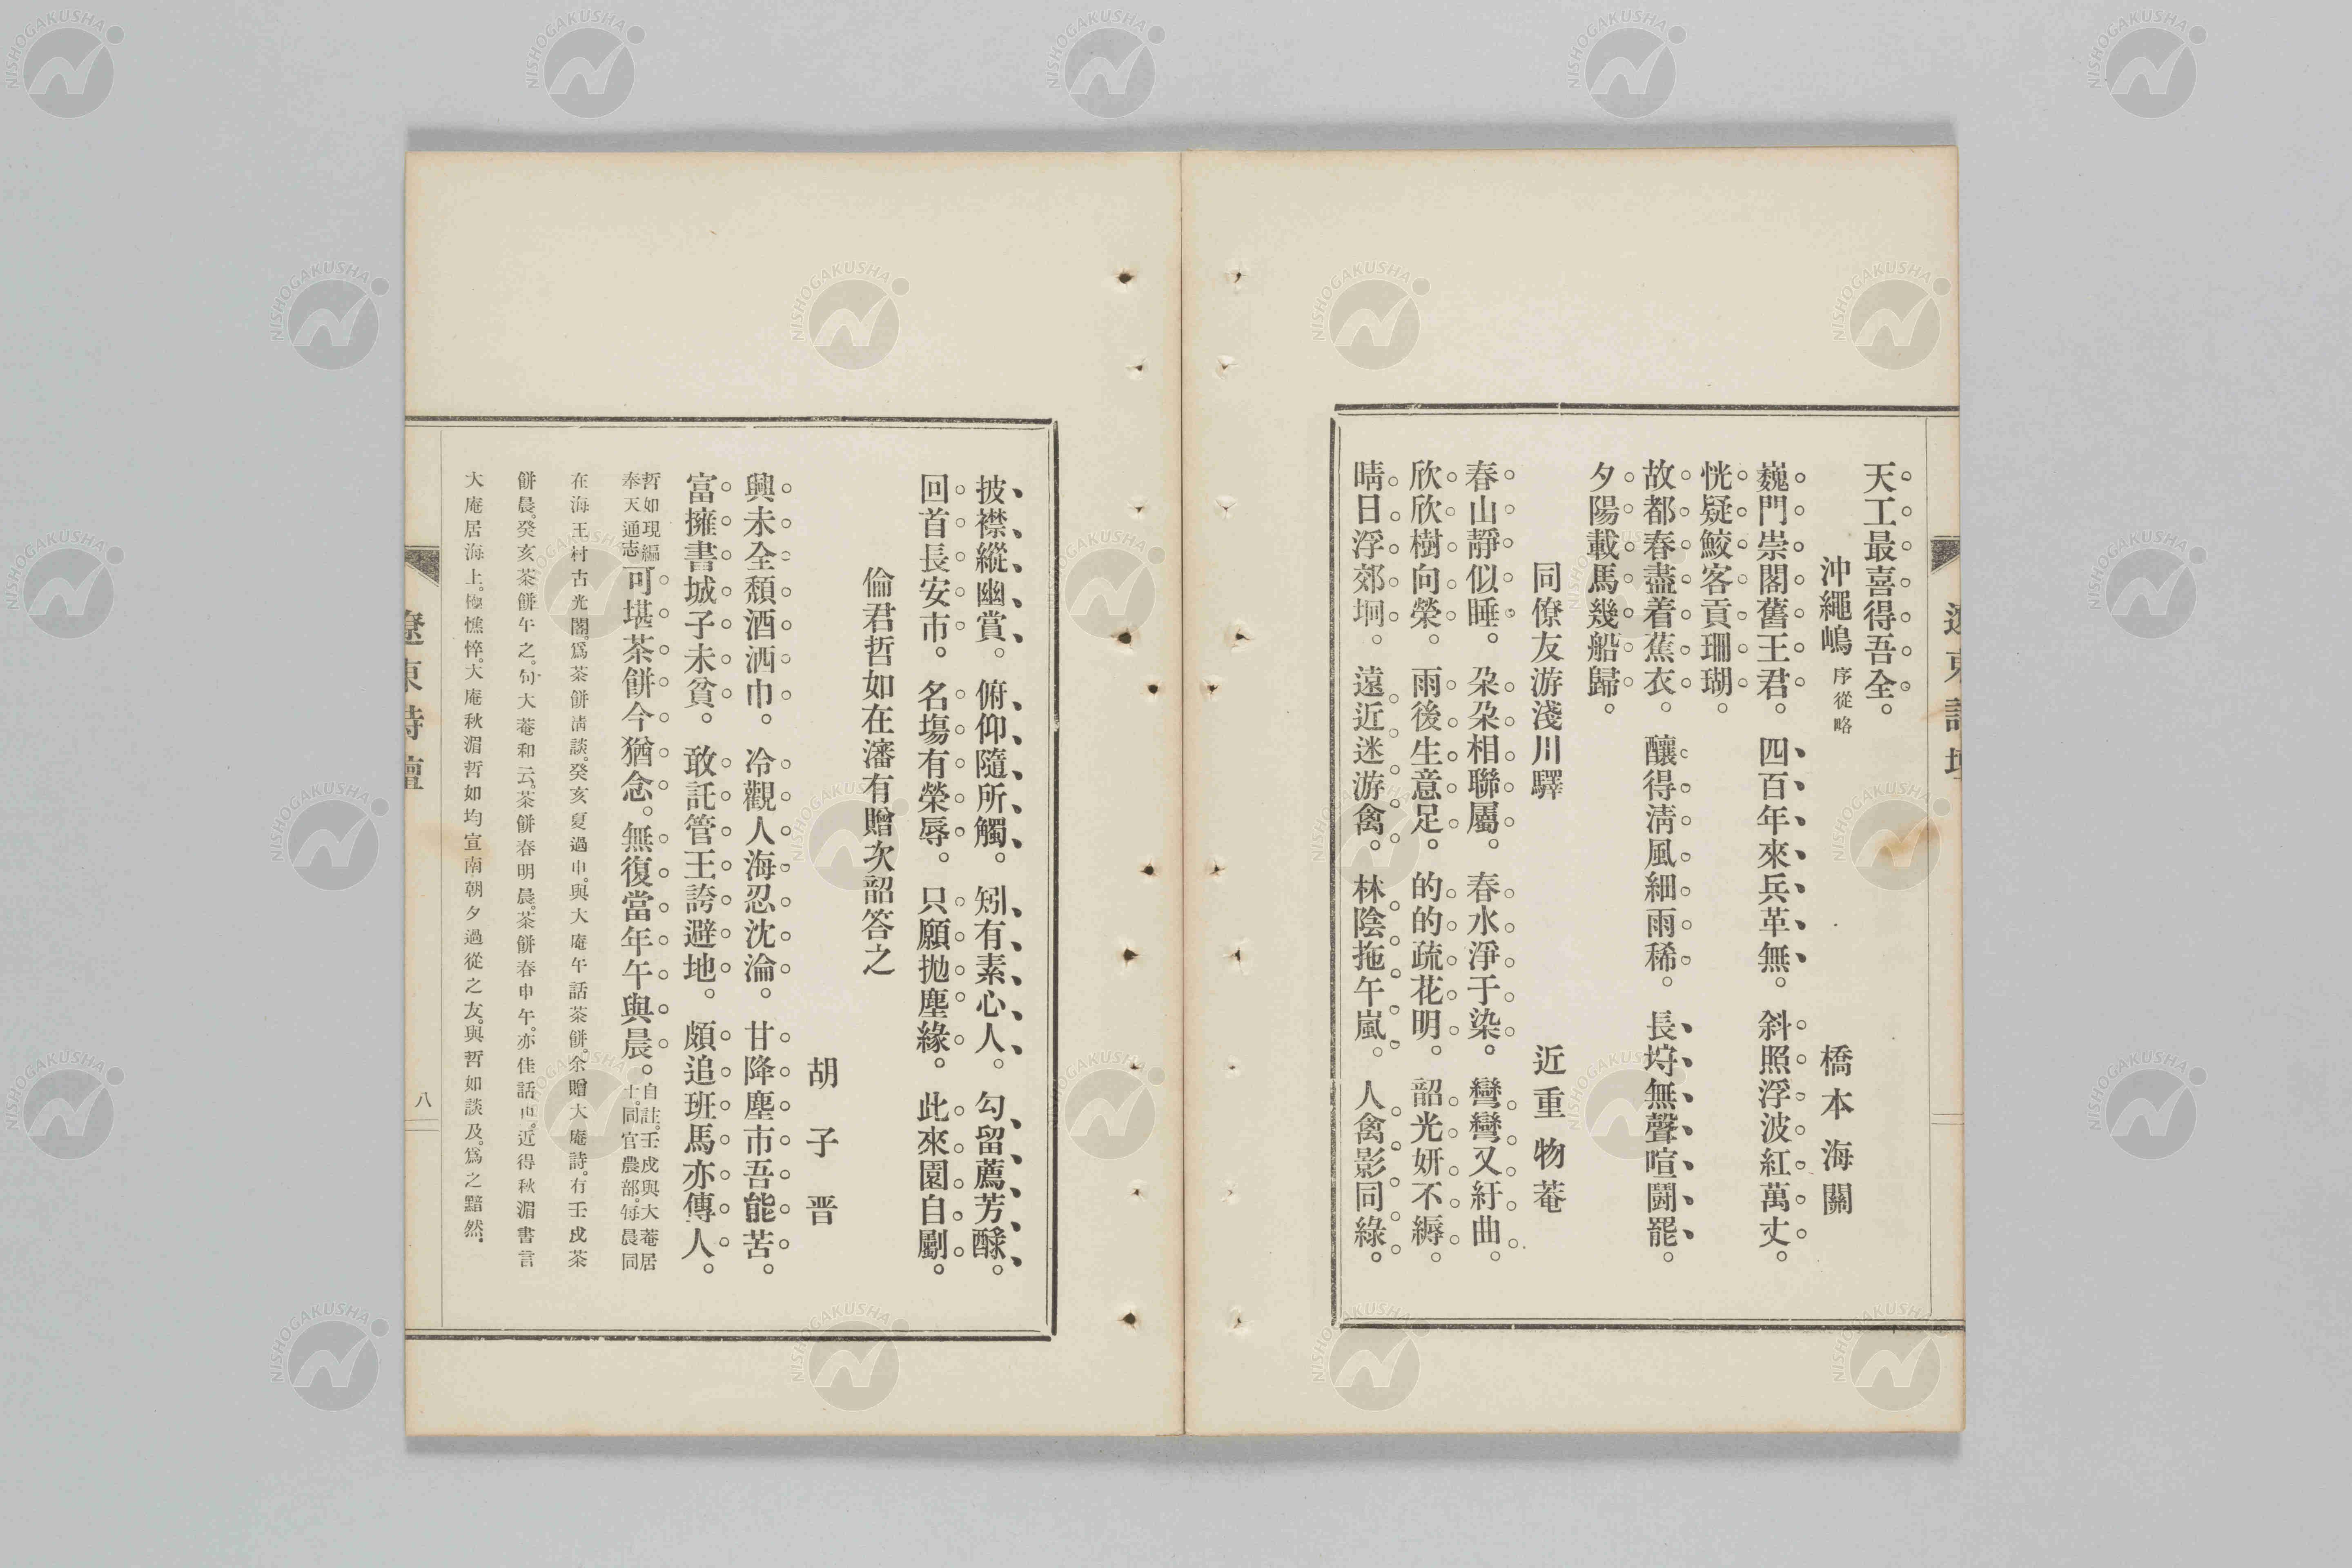 天工最喜得吾全。
沖繩嶋 序從略 橋本海關
巍門崇閣舊王君。四百年來兵革無。斜照浮波紅萬丈。
恍疑鮫客貢珊瑚。
故都春盡着蕉衣。釀得淸風細雨稀。長垮無聲喧鬪罷。
夕陽載馬幾船歸。
同僚友游淺川驛 近重物菴
春山靜似睡。朶朶相聯屬。春水淨于染。彎彎又紆曲。
欣欣樹向榮。雨後生意足。的的疏花明。韶光妍不縟。
晴日浮郊坰。遠近迷游禽。林陰拖午嵐。人禽影同綠。
披襟縱幽賞。俯仰隨所觸。矧有素心人。勾留薦芳醁。
回首長安市。名塲有榮辱。只願拋塵緣。此來園自劚。
倫君哲如在瀋有贈次韶答之
胡子晋
興未全頹酒洒巾。冷觀人海忍沈淪。甘降塵市吾能苦。
富擁書城子未貧。敢託管王誇避地。頗追班馬亦傳人。
哲如現編奉天通志可堪茶餅今猶念。無復當年午與晨。自註。壬戌與大菴居士。同官農部。每晨同居
在海王村古光閣。爲茶餅淸談。癸亥夏過申。與大庵午話茶餅。余贈大庵詩。有壬戌茶
餅晨。癸亥茶餅午之。句大菴和云。茶餅春明晨。茶餅春申午。亦佳話也。近得秋湄書言
大庵居海上。極憔悴。大庵秋湄哲如均宣南朝夕過從之友。與哲如談及。爲之黯然。
遼東詩壇
八
NISHOGAKUSHA